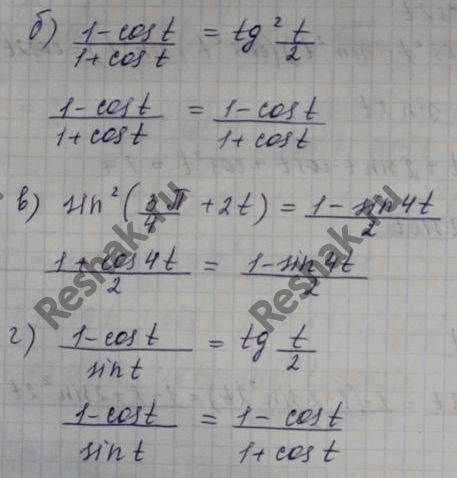 б) (1-cost)/(1+cost) = tg² t/2
(1-cost)/(1+cost) = (1-cost)/(1+cost)
в) sin²(3π/4 + 2t) = (1-sin4t)/2
(1+cos4t)/2 = (1-sin4t)/2
г) (1-cost)/sint = tg t/2
(1-cost)/sint = (1-cost)/(1+cost)
Reshak.ru
Reshak.ru